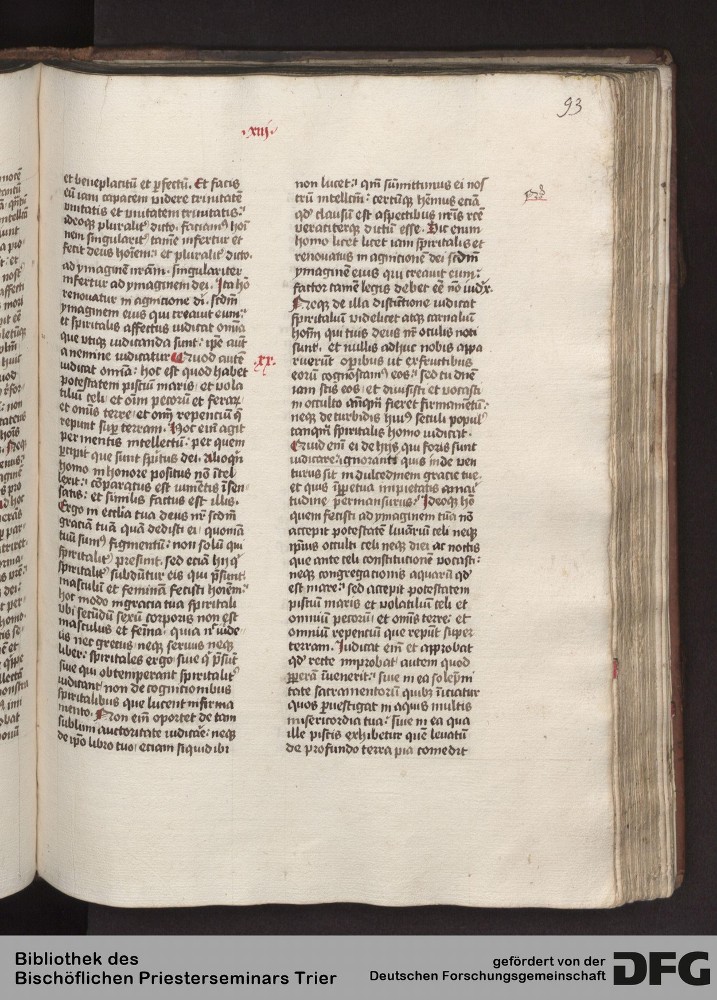 93
·xiij·
et beneplacitū et ꝑfectū. Et facis
eū iam capacem videre trinitatē
vnitatis et vnitatem trinitatis:
ideoqꝫ pluralit̛ dicto. faciamꝰ hoī
nem singularit̛ tamē infertur et
fecit deus hoīem: et pluralit̛ dicto.
ad ymaginē nr̄am. singulariter
infertur ad ymaginem dei. Ita hō
renouatur in agnitione dī. scdm̄
ymaginem eius qui creauit eum:
et spiritalis affectus iudicat om̄ia
que vtiqꝫ iudicanda sunt: ip̄e aūt
a nemine iudicatur Quod autē
·xx·
iudicat omīa: hoc est quod habet
potestatem pisciū maris et vola
tiliū celi et oīm pecorū et feraꝝ
et om̄is terre et om̄ repenciū q̄
repunt suꝑ terram. Hoc eim̄ agit
per mentis intellectū: per quem
ꝑcipit que sunt sp̄ūs dei. Alioqin̄
homo in honore positus nō ītel
lexit: cōparatus est iumētis īsen
satis: et similis factus est illis.
Ergo in ecclīa tua deus nr̄ scdm̄
graciā tuā quā dedisti ei quoniā
tuū sumꝰ figmentū: non solū qui
spiritalit̛ presunt. sed eciā hij qͥ
spiritalit̛ subdūtur eis qui p̄sunt
masculū et feminā fecisti hoīem:
hoc modo in gracia tua spiritali
vbi secūdū sexū corporis non est
masculus et fem̄a: quia nͨ iude
us nec grecus neqꝫ seruus neqꝫ
liber: spiritales ergo siue qͥ p̄sūt
siue qui obtemperant spiritalit̛
iudicant non de cognicionibus
spiritalibus que lucent in firma
mento. Non eim̄ oportet de tam
sublimi auctoritate iudicare: neqꝫ
de ip̄o libro tuo eciam si quid ibi
non lucet: qm̄ sūmittimus ei nos
trū intellc̄m: certūqꝫ hēmus eciā
qd̛ clausū est aspectibus nr̄is rc̄e
veraciterqꝫ dictū esse. Sic enim
homo licet licet iam spiritalis et
renouatus in agnicionē dei scdm̄
ymaginem eius qui creauit eum:
factor tamē legis debet eē nō iudꝫx.
Neqꝫ de illa distinctione iudicat
spiritaliū videlicet atqꝫ carnaliū
hoīm qui tuis deus nr̄ oculis noti
sunt. et nullis adhuc nobis appa
ruerunt opibus ut ex fructibus
eorū cognoscamꝰ eos: sed tu dnē
iam scis eos et diuisisti et vocasti
in occulto anteqm̄ fieret firmamētū:
neqꝫ de turbidis huiꝰ seculi populꝰ
tamqm̄ spiritalis homo iudicat.
Quid eim̄ ei de hijs qui foris sunt
iudicare: ignoranti quis inde ven
turus sit in dulcedinem gracie tue.
et quis ī ꝑpetua impietatis amari
tudine permansurus. Ideoqꝫ hō
quem fecisti ad ymaginem tuā nō
accepit potestatē luīariū celi neqꝫ
ip̄ius occulti celi neqꝫ diei ac noctis
que ante celi constitucionē vocasti:
neqꝫ congregacionis aquarū qd̛
est mare: sed accepit potestatem
pisciū maris et volatiliū celi et
omniū pecorū et om̄is terre: et
omniū repenciū que repūt super
terram. Iudicat eim̄ et approbat
qd̛ recte improbat autem quod
ꝑperā īuenerit: siue in ea solēpni
tate sacramentorū quibꝫ īiciatur
quos ꝑuestigat in aquis multis
misericordia tua: siue in ea qua
ille piscis exhibetur quē leuatū
de profundo terra pia comedit
Bibliothek des
Bischöflichen Priesterseminars Trier
gefördert von der
Deutschen Forschungsgemeinschaft
DFG